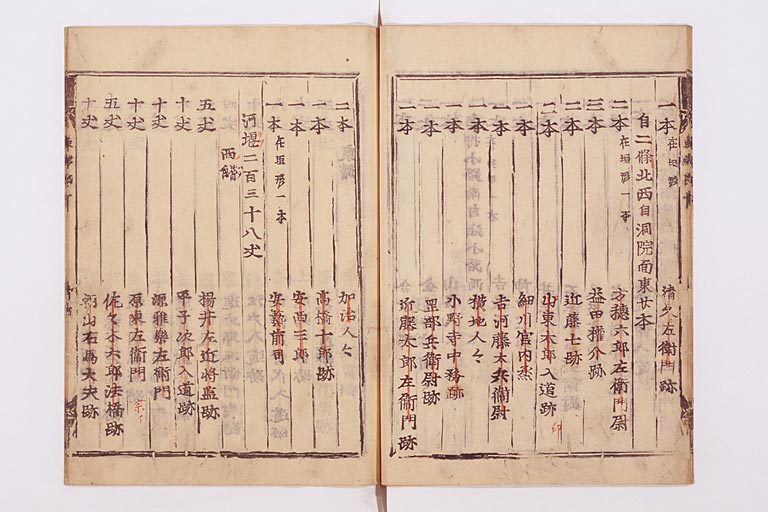 一本 在垣形 清久左衛門跡
自二條北西自洞院南東廿本
二本 在垣形一本 方穂六郎左衛門尉
三本 益田權介跡
二本 近藤七跡
二本 山東太郎入道跡
一本 細川宮内丞
一本 吉河藤太兵衛尉
一本 横地人々
一本 小野寺中務跡
二本 兵衛尉跡
二本 近藤太郎左衛門跡
二本 加治人々
二本 高橋十郎跡
一本 安西三郎跡
一本 在垣形一本 安藝前司
河堰二百三十八丈
西鰭
五丈 揚井左近將監跡
十丈 平子次郎入道跡
十丈 源雅樂左衛門
十丈 原東左衛門
五丈 佐々木六郎法橋跡
十丈 郡山右馬大夫跡